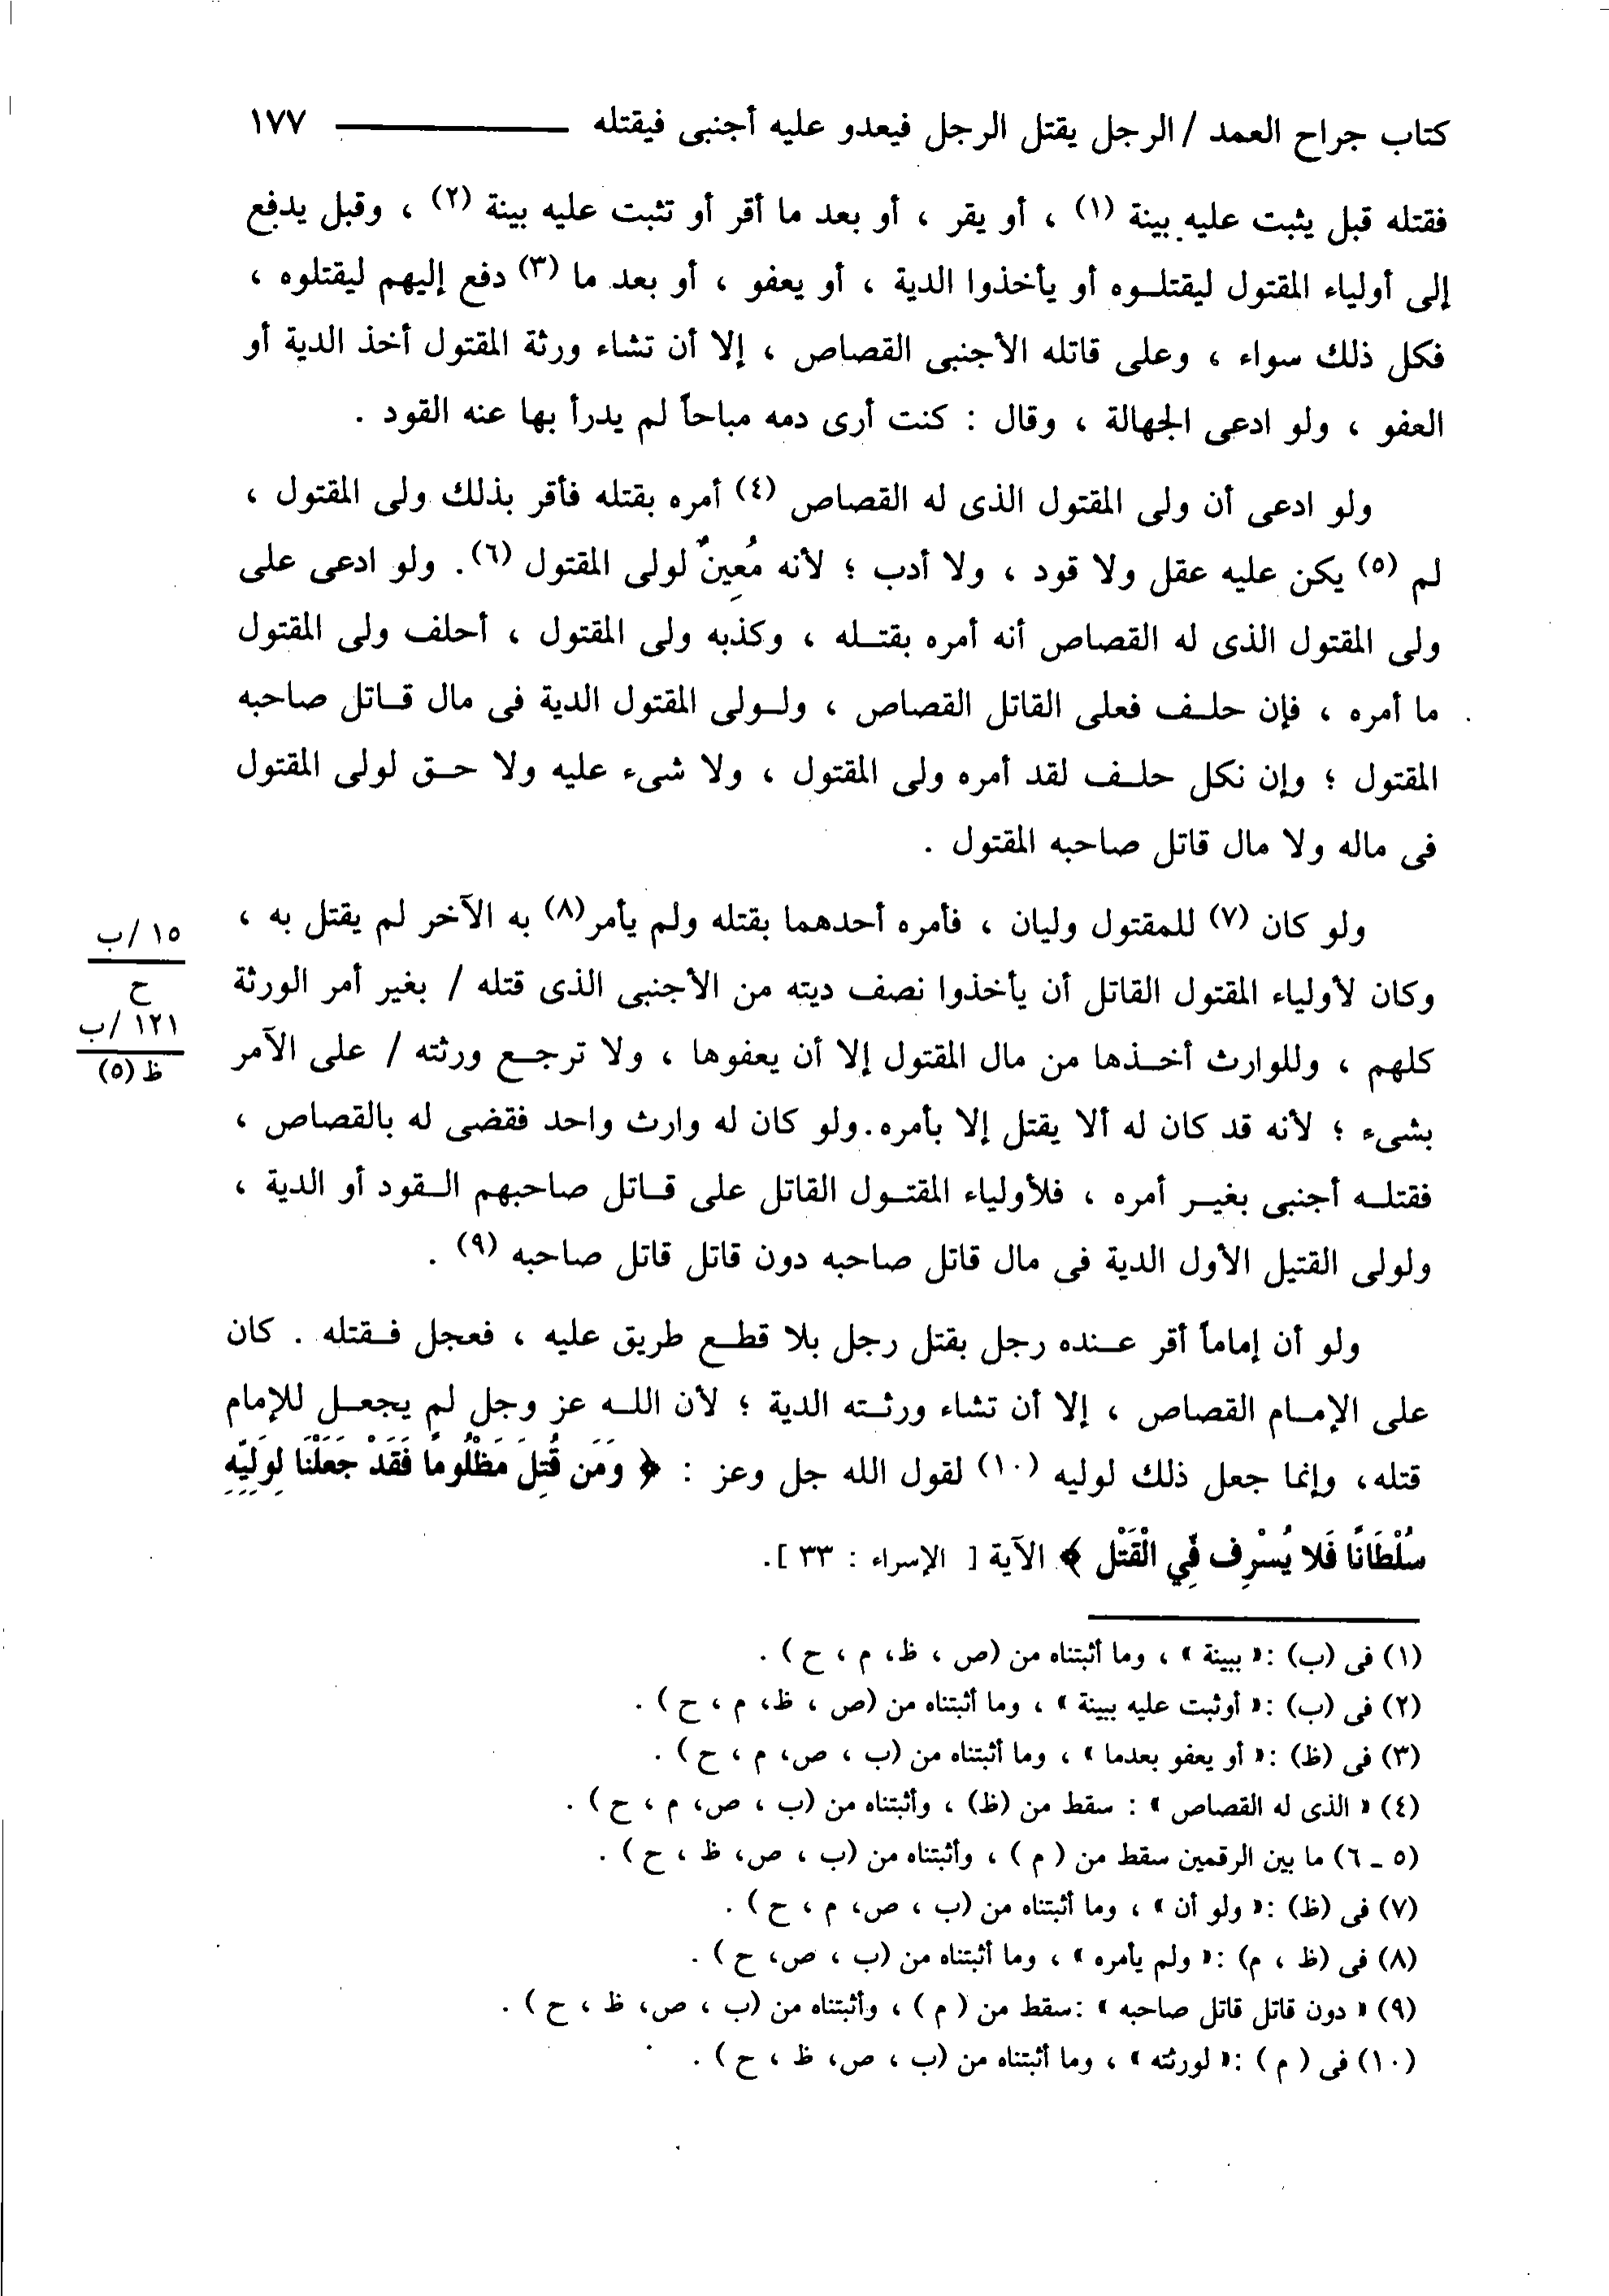 كتاب جراح العمد / الرجل يقتل الرجل فيعدو عليه أجنبى فيقتله ١٧٧
فقتله قبل يثبت عليه بينة (١) ، أو يقر ، أو بعد ما أقر أو تثبت عليه بينة (٢) ، وقبل يدفع
إلى أولياء المقتول ليقتلوه أو يأخذوا الدية ، أو يعفو ، أو بعد ما (٣) دفع إليهم ليقتلوه ،
فكل ذلك سواء ، وعلى قاتله الأجنبى القصاص ، إلا أن تشاء ورثة المقتول أخذ الدية أو
العفو ، ولو ادعى الجهالة ، وقال : كنت أرى دمه مباحاً لم يدرأ بها عنه القود .
ولو ادعى أن ولى المقتول الذى له القصاص (٤) أمره بقتله فأقر بذلك ولى المقتول ،
لم (٥) يكن عليه عقل ولا قود ، ولا أدب ؛ لأنه مُعِينٌ لولى المقتول (٦). ولو ادعى على
ولى المقتول الذى له القصاص أنه أمره بقتله ، وكذبه ولى المقتول ، أحلف ولى المقتول
ما أمره ، فإن حلف فعلى القاتل القصاص ، ولولى المقتول الدية فى مال قاتل صاحبه
المقتول ؛ وإن نكل حلف لقد أمره ولى المقتول ، ولا شىء عليه ولا حق لولى المقتول
فى ماله ولا مال قاتل صاحبه المقتول .
ولو كان (٧) للمقتول وليان ، فأمره أحدهما بقتله ولم يأمر(٨) به الآخر لم يقتل به ،
وكان لأولياء المقتول القاتل أن يأخذوا نصف ديته من الأجنبى الذى قتله / بغير أمر الورثة
كلهم ، وللوارث أخذها من مال المقتول إلا أن يعفوها ، ولا ترجع ورثته / على الآمر
بشىء ؛ لأنه قد كان له ألا يقتل إلا بأمره.ولو كان له وارث واحد فقضى له بالقصاص ،
فقتله أجنبى بغير أمره ، فلأولياء المقتول القاتل على قاتل صاحبهم القود أو الدية ،
ولولى القتيل الأول الدية فى مال قاتل صاحبه دون قاتل قاتل صاحبه (٩) .
١٥ /ب
ح
١٢١ /ب
ظ (٥)
ولو أن إماماً أقر عنده رجل بقتل رجل بلا قطع طريق عليه ، فعجل فقتله . كان
على الإمام القصاص ، إلا أن تشاء ورثته الدية ؛ لأن الله عز وجل لم يجعل للإمام
قتله، وإنما جعل ذلك لوليه (١٠) لقول الله جل وعز : ﴿ وَمَن قُتِلَ مَظْلُومًا فَقَدْ جَعَلْنَا لِوَلِيِّهِ
سُلْطَانًا فَلا يُسْرِف فِّي الْقَتْلِ ﴾ الآية [ الإسراء : ٣٣ ].
(١) فى (ب) :« ببينة » ، وما أثبتناه من (ص ، ظ، م ، ح ) .
(٢) فى (ب) :« أوثبت عليه ببينة » ، وما أثبتناه من (ص ، ظ، م ، ح ) .
(٣) فى (ظ) :« أو يعفو بعدما » ، وما أثبتناه من (ب ، ص، م ، ح ) .
(٤) « الذى له القصاص » : سقط من (ظ) ، وأثبتناه من (ب ، ص، م ، ح ) .
(٥ ـ ٦) ما بين الرقمين سقط من ( م ) ، وأثبتناه من (ب ، ص، ظ ، ح ) .
(٧) فى (ظ) :« ولو أن » ، وما أثبتناه من (ب ، ص، م ، ح ) .
(٨) فى (ظ ، م) :« ولم يأمره » ، وما أثبتناه من (ب ، ص، ح ) .
(٩) « دون قاتل قاتل صاحبه » :سقط من ( م ) ، وأثبتناه من (ب ، ص، ظ ، ح ) .
(١٠) فى ( م ) :« لورثته » ، وما أثبتناه من (ب ، ص، ظ ، ح ) .